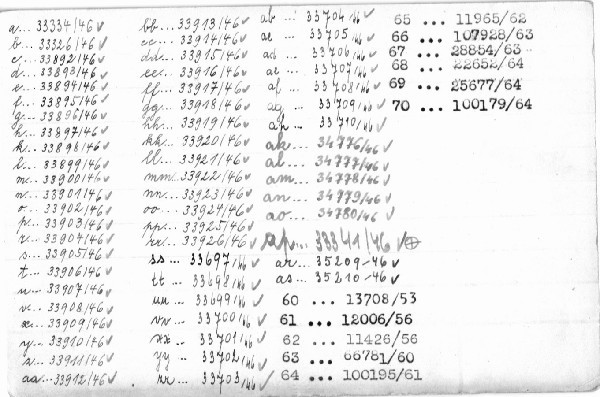 a... 33334/46 ✓
b... 33326/46 ✓
c... 33892/46 ✓
d... 33893/46 ✓
e... 33894/46 ✓
f... 33895/46 ✓
g... 33896/46 ✓
h... 33897/46 ✓
k... 33898/46 ✓
l... 33899/46 ✓
m... 33900/46 ✓
n... 33901/46 ✓
o... 33902/46 ✓
p... 33903/46 ✓
r... 33904/46 ✓
s... 33905/46 ✓
t... 33906/46 ✓
u... 33907/46 ✓
v... 33908/46 ✓
x... 33909/46 ✓
y... 33910/46 ✓
z... 33911/46 ✓
aa... 33912/46 ✓
bb... 33913/46 ✓
cc... 33914/46 ✓
dd... 33915/46 ✓
ee... 33916/46 ✓
ff... 33917/46 ✓
gg... 33918/46 ✓
hh... 33919/46 ✓
kk... 33920/46 ✓
ll... 33921/46 ✓
mm... 33922/46 ✓
nn... 33923/46 ✓
oo... 33924/46 ✓
pp... 33925/46 ✓
rr... 33926/46 ✓
ss... 33697/46 ✓
tt... 33698/46 ✓
uu... 33699/46 ✓
vv... 33700/46 ✓
xx... 33701/46 ✓
yy... 33702/46 ✓
33703/46 ✓
ab... 33704/46 ✓
ac... 33705/46 ✓
ad... 33706/46 ✓
ae... 33707/46 ✓
af... 33708/46 ✓
ag... 33709/46 ✓
33710/46 ✓
ak... 34776/46 ✓
al... 34777/46 ✓
am... 34778/46 ✓
an... 34779/46 ✓
ao... 34780/46 ✓
ap... 33341/46 ✓
ar... 35209-46 ✓
as... 35210-46 ✓
60 ... 13708/53
61 ... 12006/56
62 ... 11426/56
63 ... 66781/60
64 ... 100195/61
65 ... 11965/62
66 ... 107928/63
67 ... 28854/63
68 ... 22652/64
69 ... 25677/64
70 ... 100179/64